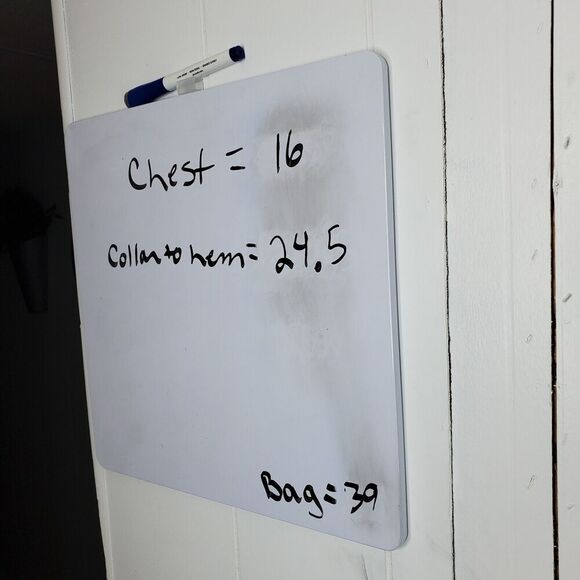 Chest = 16
Collar to hem = 24.5
Bag = 39